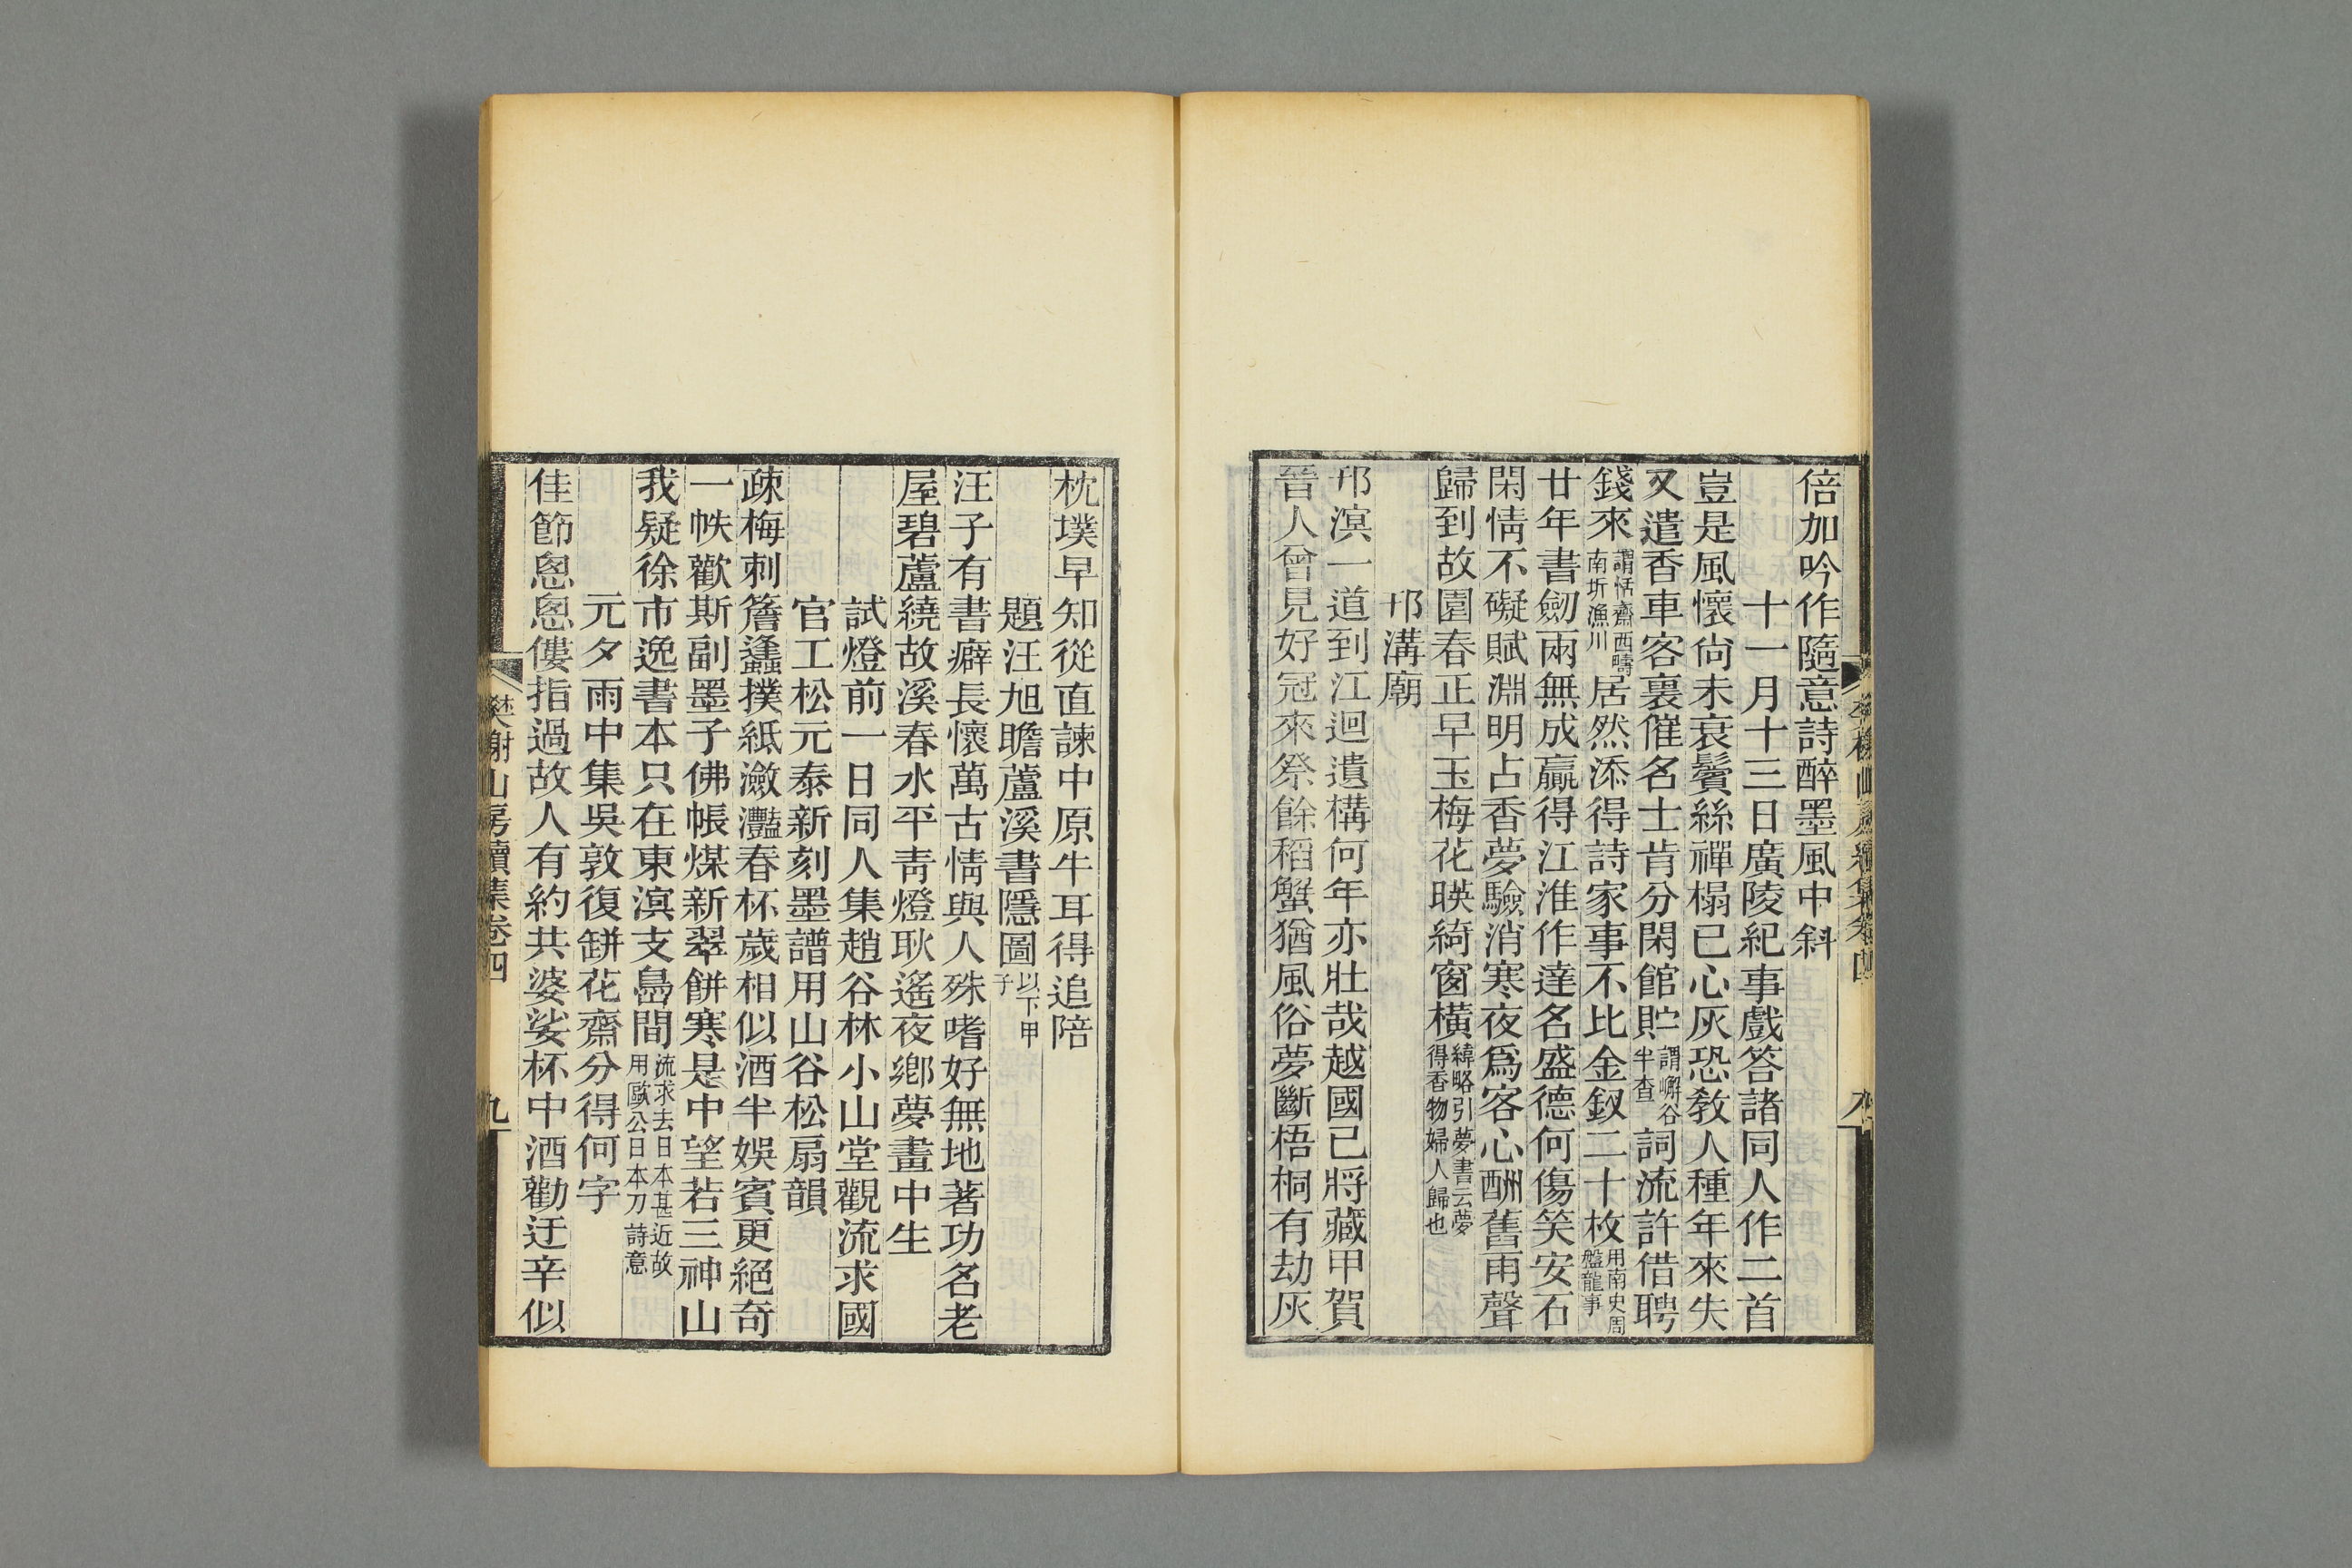 倍加吟作隨意詩醉墨風中斜
十一月十三日廣陵紀事戲答諸同人作二首
豈是風懷尙未衰鬢絲禪榻已心灰恐敎人種年來失
又遣香車客裏催名士肯分閑館貯謂嶰谷半查詞流許借聘
錢來謂恬齋西疇南圻漁川居然添得詩家事不比金釵二十枚用南史周盤龍事
廿年書劒兩無成贏得江淮作達名盛德何傷笑安石
閑情不礙賦淵明占香夢驗消寒夜爲客心酬舊雨聲
歸到故園春正早玉梅花暎綺窗橫緯略引夢書云夢得香物婦人歸也
邗溝廟
邗溟一道到江迴遺構何年亦壯哉越國已將藏甲賀
晉人曾見好冠來祭餘稻蟹猶風俗夢斷梧桐有劫灰
枕墣早知從直諫中原牛耳得追陪
題汪旭瞻蘆溪書隱圖以下甲子
汪子有書癖長懷萬古情與人殊嗜好無地著功名老
屋碧蘆繞故溪春水平靑燈耿遙夜鄕夢畫中生
試燈前一日同人集趙谷林小山堂觀流求國
官工松元泰新刻墨譜用山谷松扇韻
疎梅刺簷蠭撲紙瀲灩春杯歲相似酒半娛賓更絕奇
一帙歡斯副墨子佛帳煤新翠餅寒是中望若三神山
我疑徐市逸書本只在東溟支島間流求去日本甚近故用歐公日本刀詩意
元夕雨中集吳敦復缾花齋分得何字
佳節恖恖僂指過故人有約共婆娑杯中酒勸迂辛似
樊榭山房續集卷四
九